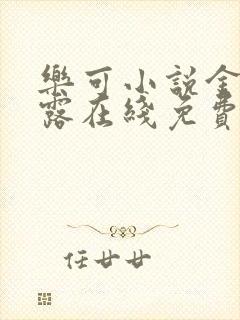 樂可小說金
露在綫免費
任廿廿